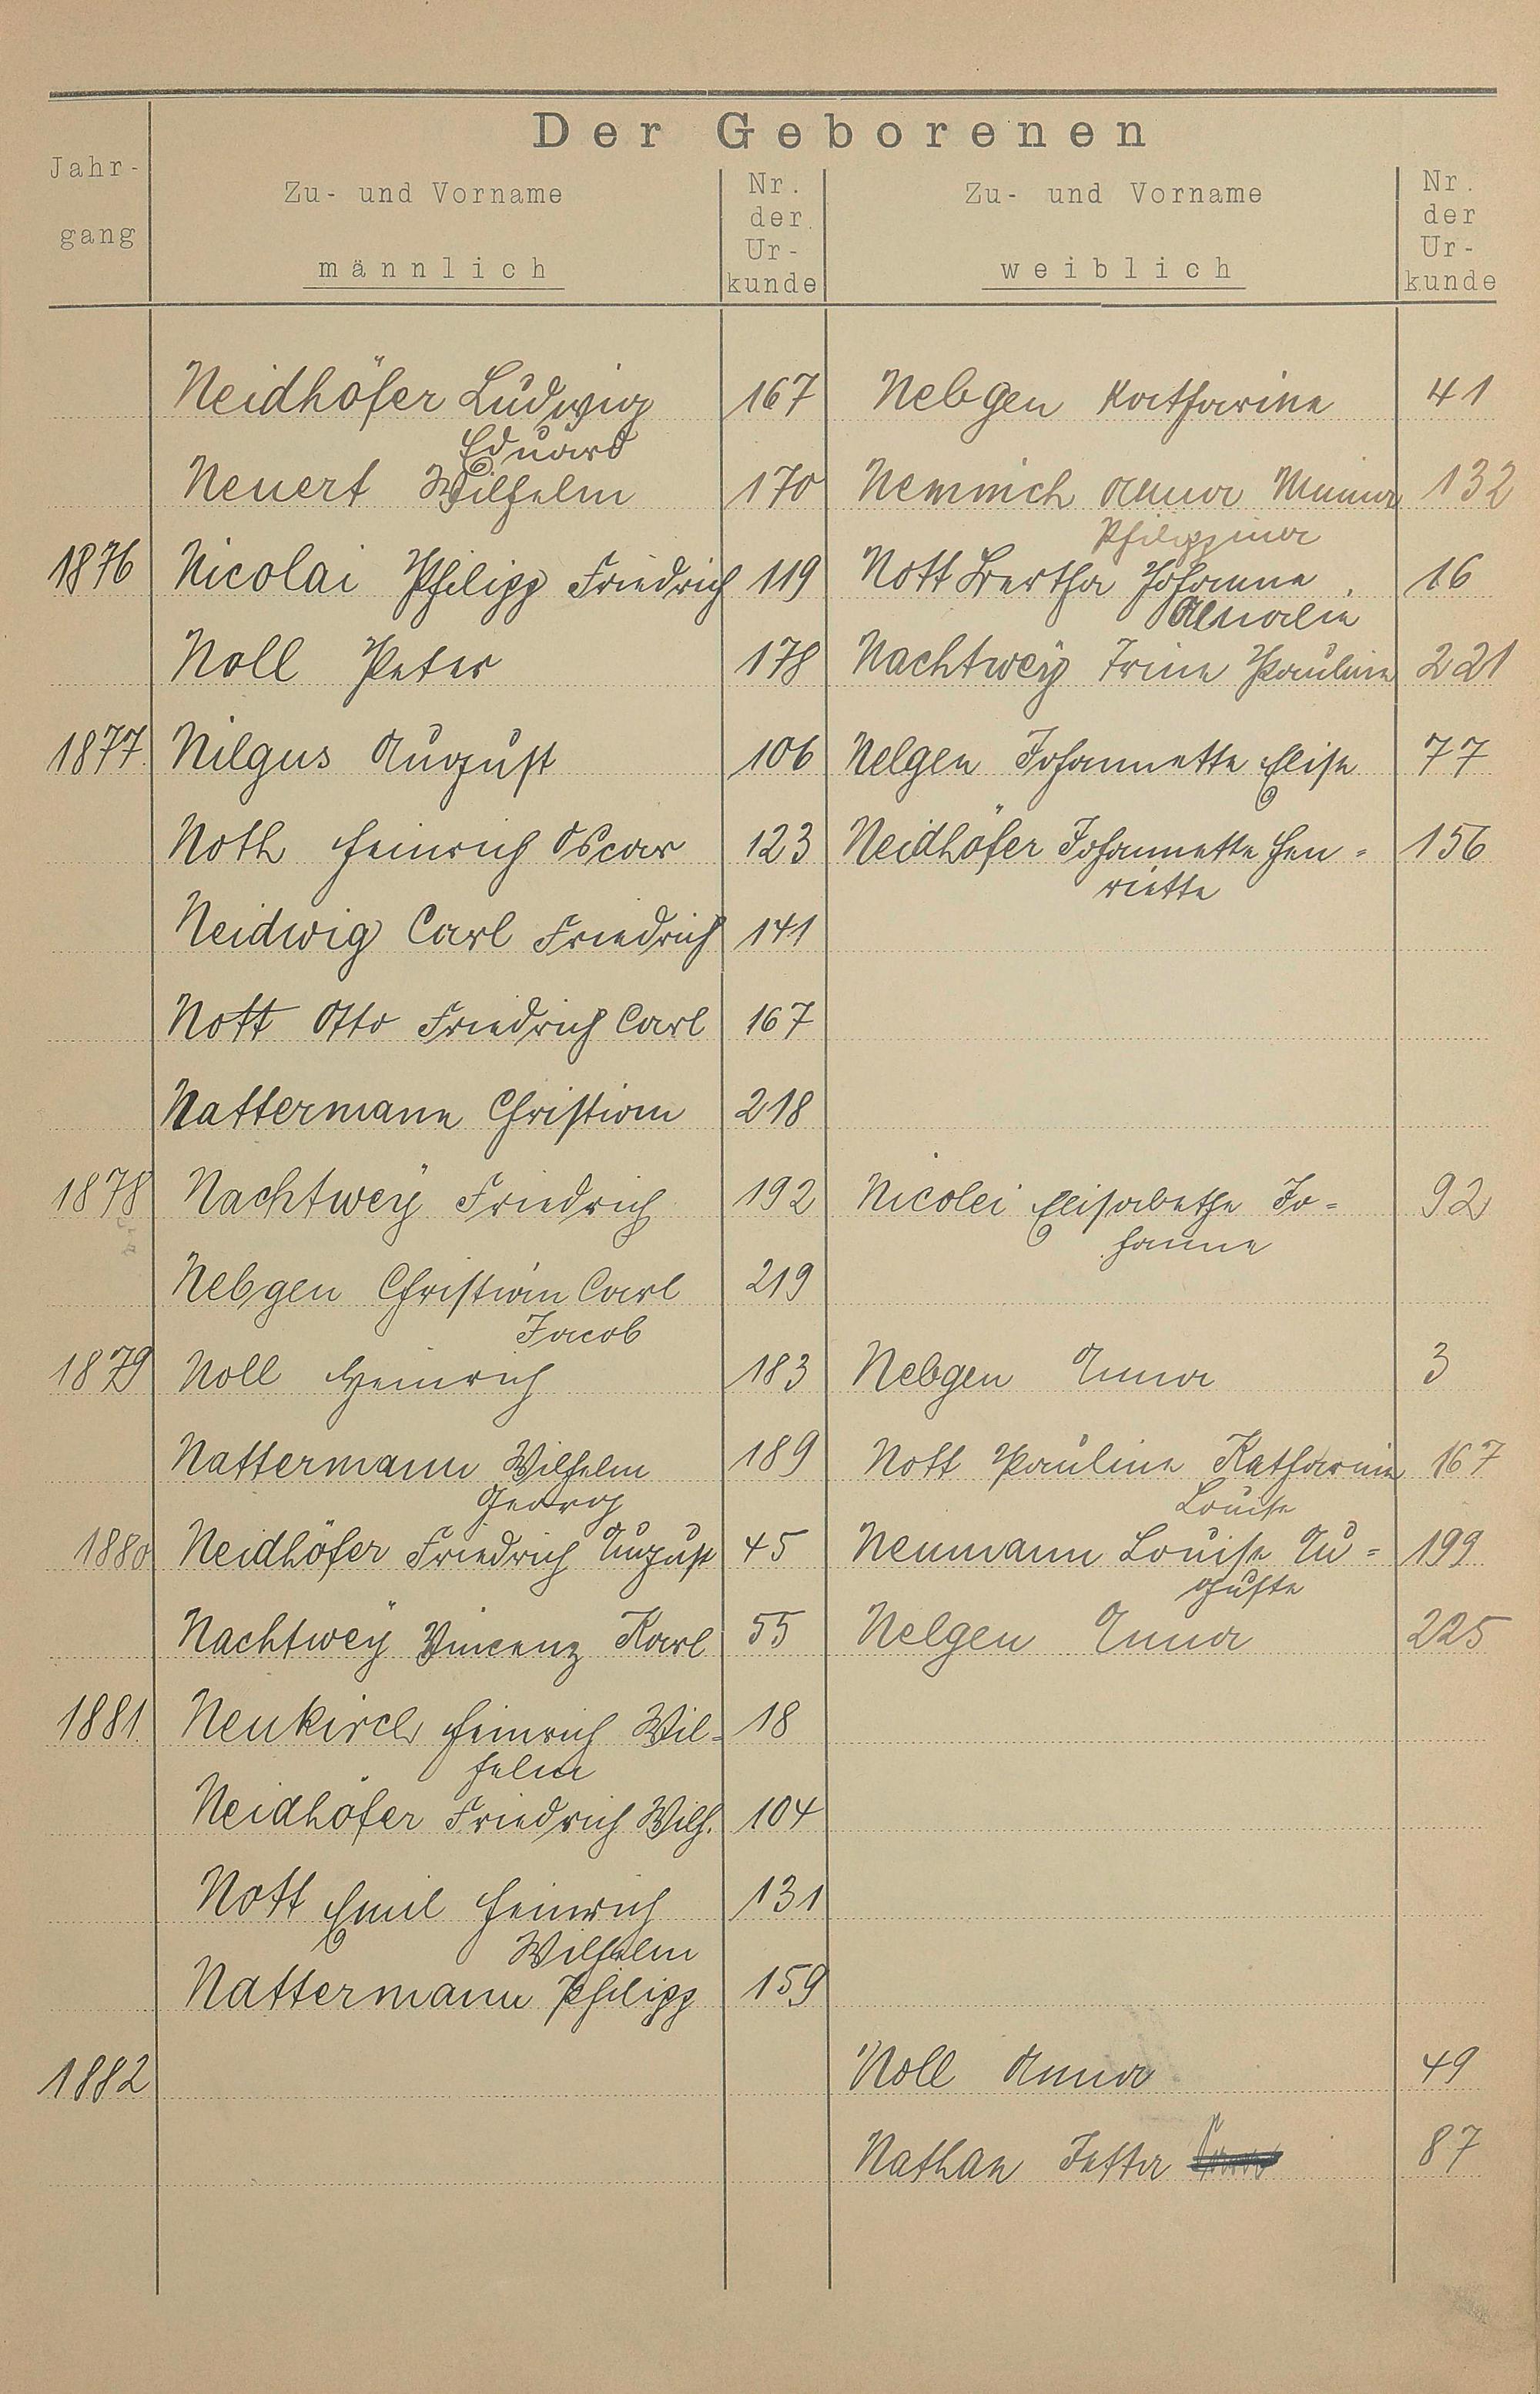 Der Geborenen
Jahr-
gang
Zu- und Vorname
männlich
Nr.
der
Ur-
kunde
Zu- und Vorname
weiblich
Nr.
der
Ur-
kunde
Neidhöfer Ludwig 167 Nebgen Katharine 41
Eduard
Neuert Wilhelm 170 Nemnich Anna Minna 132
Philippina
1876 Nicolai Philipp Friedrich 119 Nott Bertha Johanna 16
Amalie
Noll Peter 178 Nachtwey Trine Pauline 221
1877 Nilgus August 106 Nelgen Johannette Elise 77
Noth Heinrich Oscar 123 Neidhöfer Johannette Hen= 156
riette
Neidwig Carl Friedrich 141
Nott Otto Friedrich Carl 167
Nattermann Christian 218
1878 Nachtweÿ Friedrich 192 Nicolei Elisabethe Jo= 92
hanne
Nebgen Christian Carl 219
Jacob
1879 Noll Heinrich 183 Nebgen Anna 3
Nattermann Wilhelm 189 Nott Pauline Katharine 167
Georg Louise
1880 Neidhöfer Friedrich August 45 Neumann Louise Au= 199
guste
Nachtweÿ Vincenz Karl 55 Nelgen Anna 225
1881. Neukirch Heinrich Wil= 18
helm
Neidhöfer Friedrich Wilh. 104
Nott Emil Heinrich 131
Wilhelm
Nattermann Philipp 159
1882 Noll Anna 49
Nathan Jetta 87